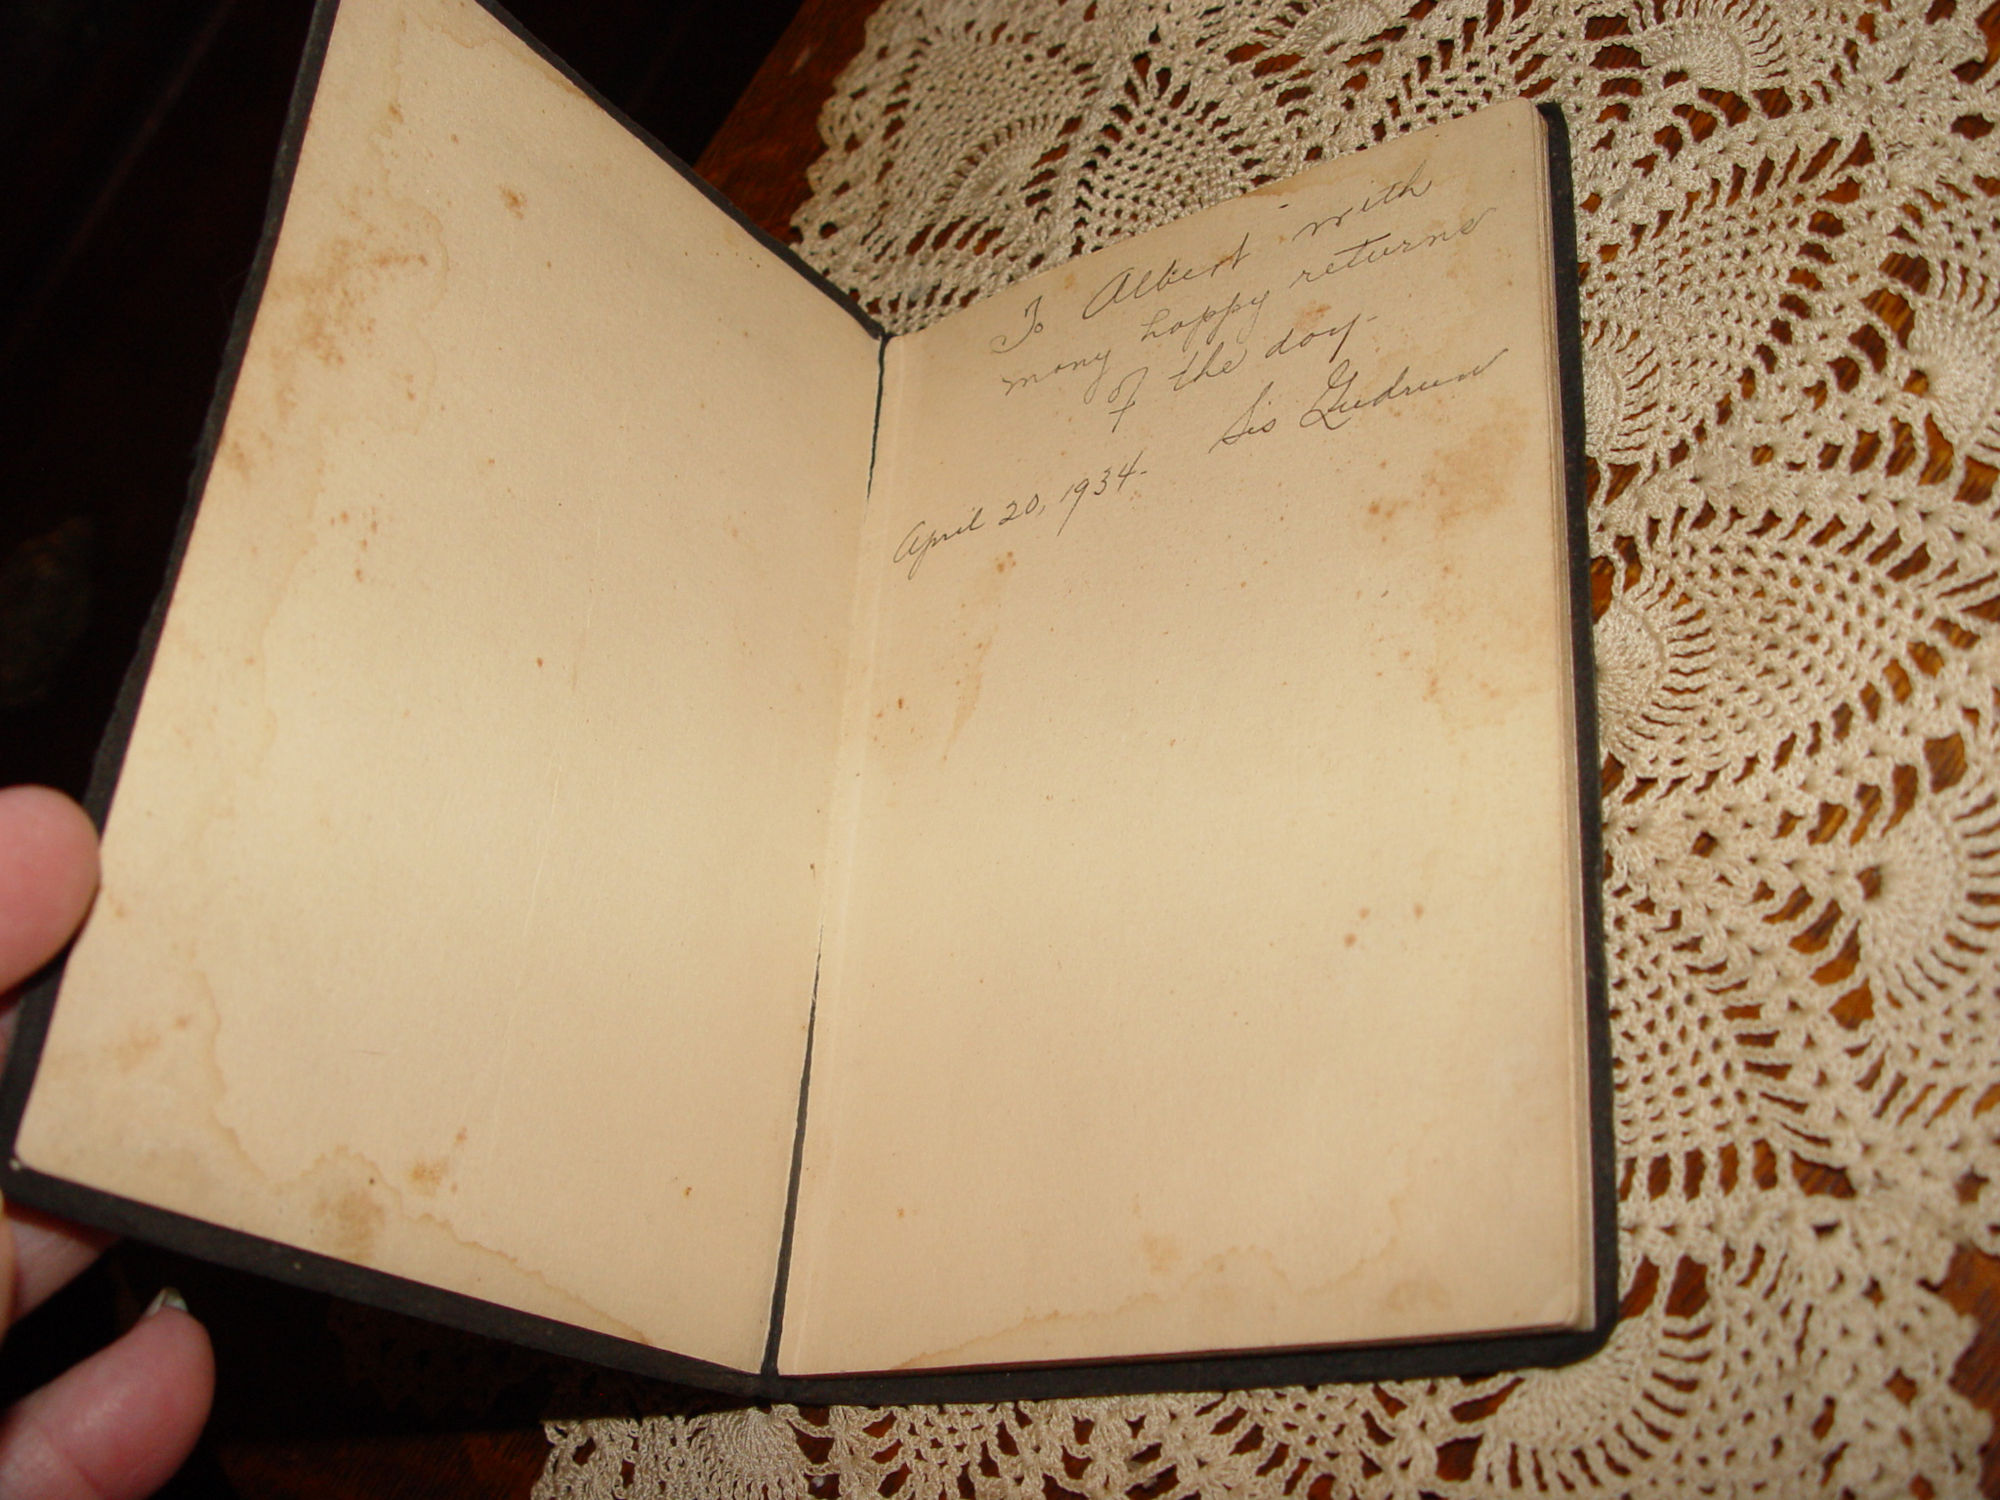 To Albert with
many happy returns
of the day-
Sis Gudrun
April 20, 1934-